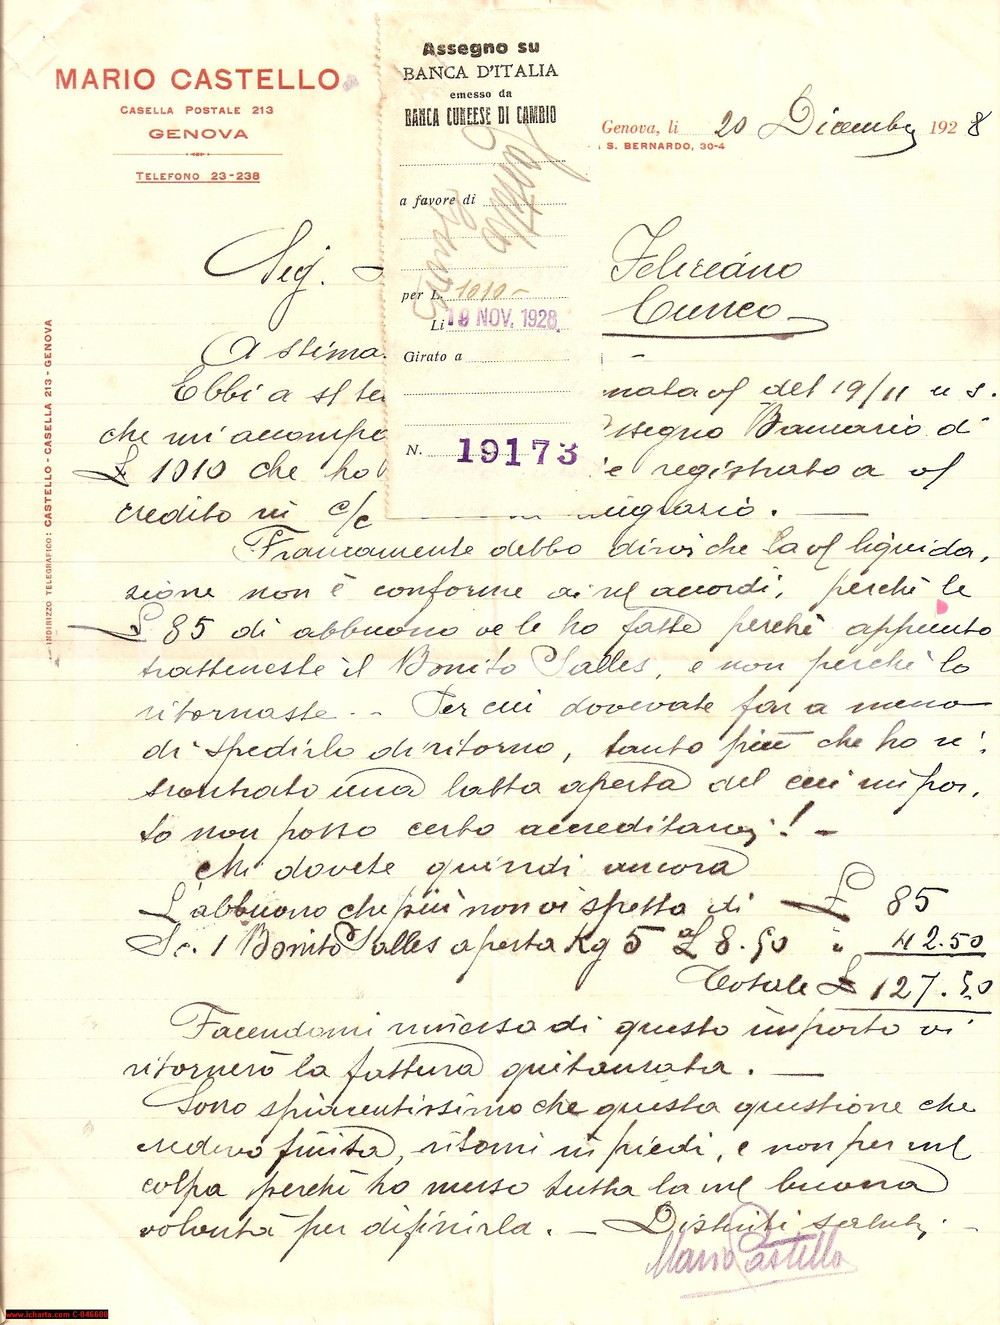 MARIO CASTELLO
CASELLA POSTALE 213
GENOVA
TELEFONO 23-238
Assegno su
BANCA D'ITALIA
emesso da
BANCA CUNEESE DI CAMBIO
a favore di
per L. 1010-
Li 19 NOV. 1928
Girato a
N. 19173
Genova, li 20 Dicembre 1928
S. BERNARDO, 30-4
INDIRIZZO TELEGRAFICO: CASTELLO - CASELLA 213 - GENOVA
Sig.
Cuneo
Ebbi a
del 19/11 u s.
che mi accompa
ssegno Bancario di
£ 1010 che ho
e registrato a
credito in c/c
Francamente debbo dirvi che la liquida,
zione non è conforme ai accordi, perchè le
£ 85 di abbuono ve le ho fatte perchè appunto
tratteneste il Bonito Salles, e non perchè lo
ritornaste. - Per cui dovevate far a meno
di spedirlo di ritorno, tanto più che ho ri,
scontrato una latta aperta del cui impor,
to non posso certo accreditarvi! -
Mi dovete quindi ancora
L'abbuono che più non vi spetta di £ 85
Sc. 1 Bonito Salles aperta Kg 5 a £ 8.50 " 42.50
Totale £ 127.50
Facendomi rimessa di questo importo vi
ritornerò la fattura quitanzata. -
Sono spiacentissimo che questa questione che
credevo finita, ritorni in piedi, e non per
colpa perchè ho messo tutta la buona
volontà per definirla. - Distinti saluti. -
Mario Castello
www.icharta.com C-046608